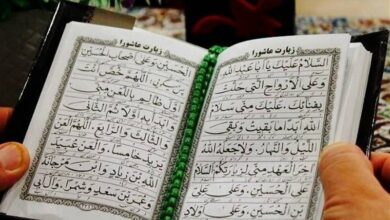 زیارت عاشورا
اَلسَّلامُ عَلَیْکَ یا اَبا عَبْدِ اللهِ
وَعَلَی الْاَرْواحِ الَّتی حَلَّتْ
بِفِنائِکَ، عَلَیْکَ مِنّی سَلامُ
اللهِ اَبَداً ما بَقیتُ وَبَقِیَ
اللَّیْلُ وَالنَّهارُ، وَلاجَعَلَهُ اللهُ
آخِرَ الْعَهْدِ مِنّی لِزِیارَتِکُمْ اَلسَّلامُ
عَلَی الْحُسَیْنِ، وَعَلی عَلِیِّ بْنِ
زیارت عاشورا
الْحُسَیْنِ، وَعَلی اَصْحابِ الْحُسَیْنِ
اَللّهُمَّ خُصَّ اَنْتَ
اَوَّلَ ظالِمٍ بِاللَّعْنِ مِنّی
وَابْدَأْ بِهِ اَوَّلاً ثُمَّ الثّانِیَ
وَالثّالِثَ وَالرّابِعَ، اَللّهُمَّ الْعَنْ
یَزیدَ خامِساً، وَالْعَنْ عُبَیْدَ
اللهِ بْنَ زِیادٍ وَابْنَ مَرْجانَةَ
وَعُمَرَ بْنَ سَعْدٍ وَشِمْراً، وَآلَ اَبی